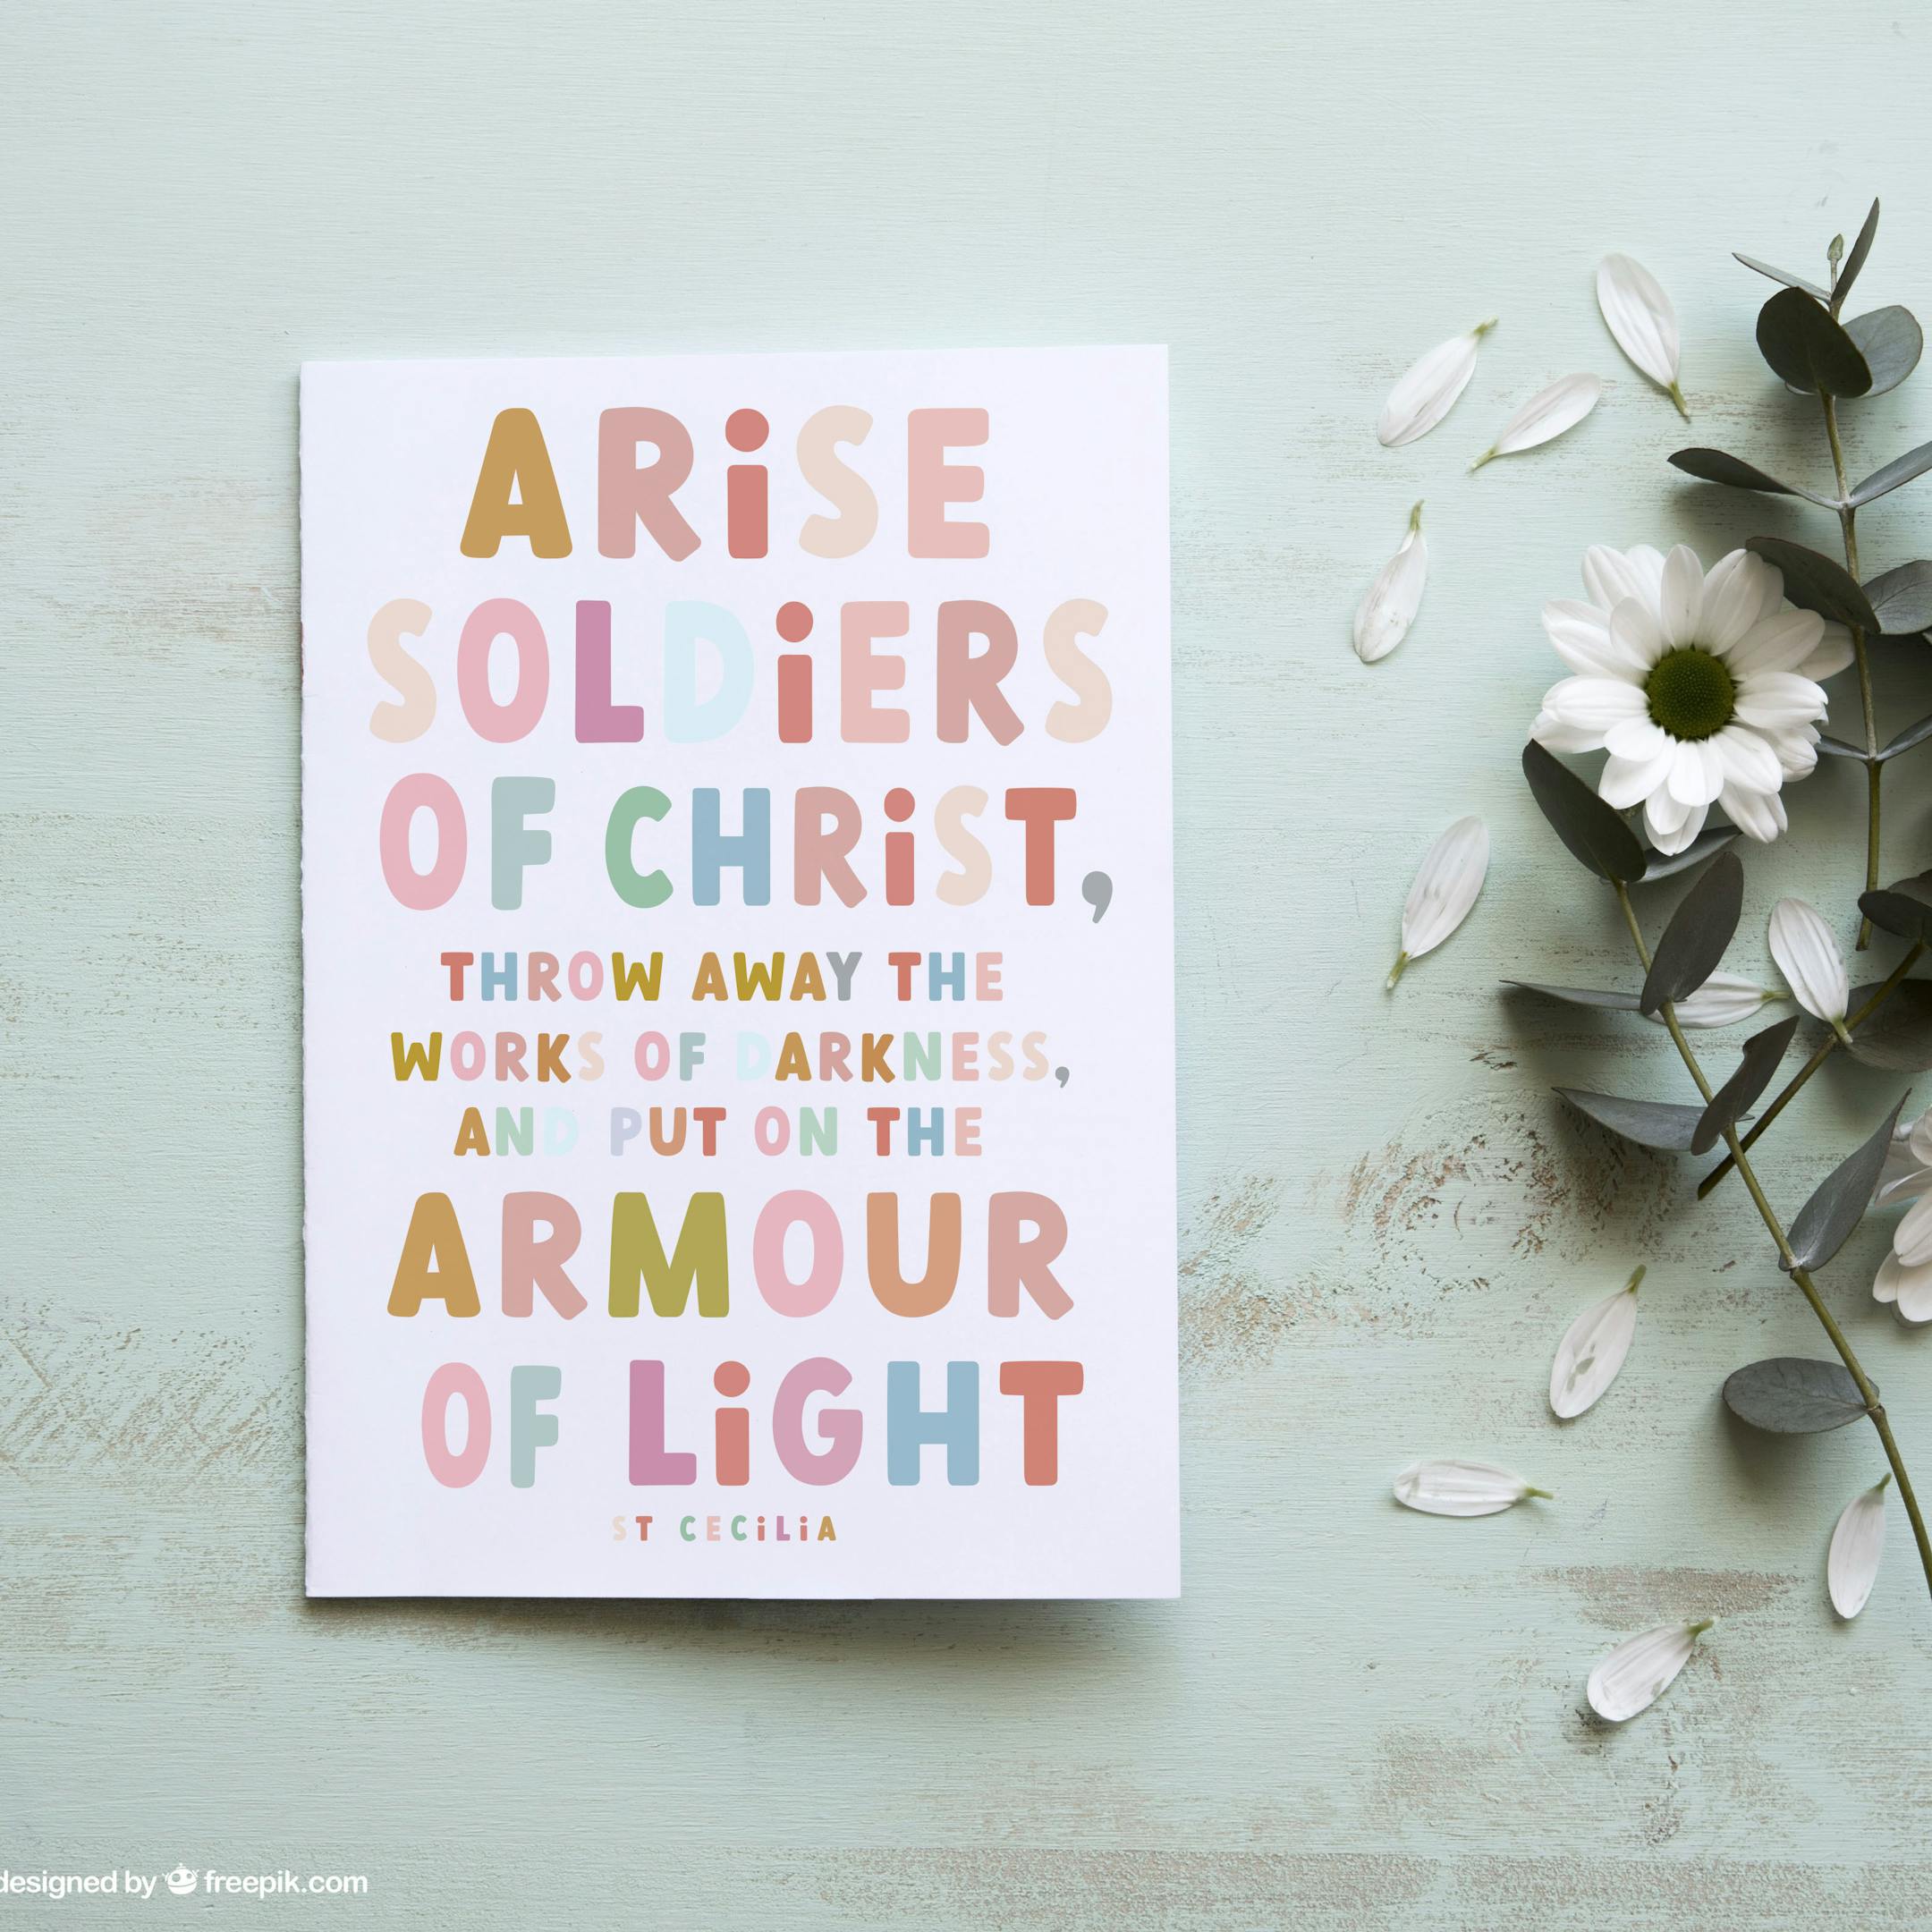 ARiSE
SOLDiERS
OF CHRiST,
THROW AWAY THE
WORKS OF DARKNESS,
AND PUT ON THE
ARMOUR
OF LiGHT
ST CECiLiA
designed by freepik.com